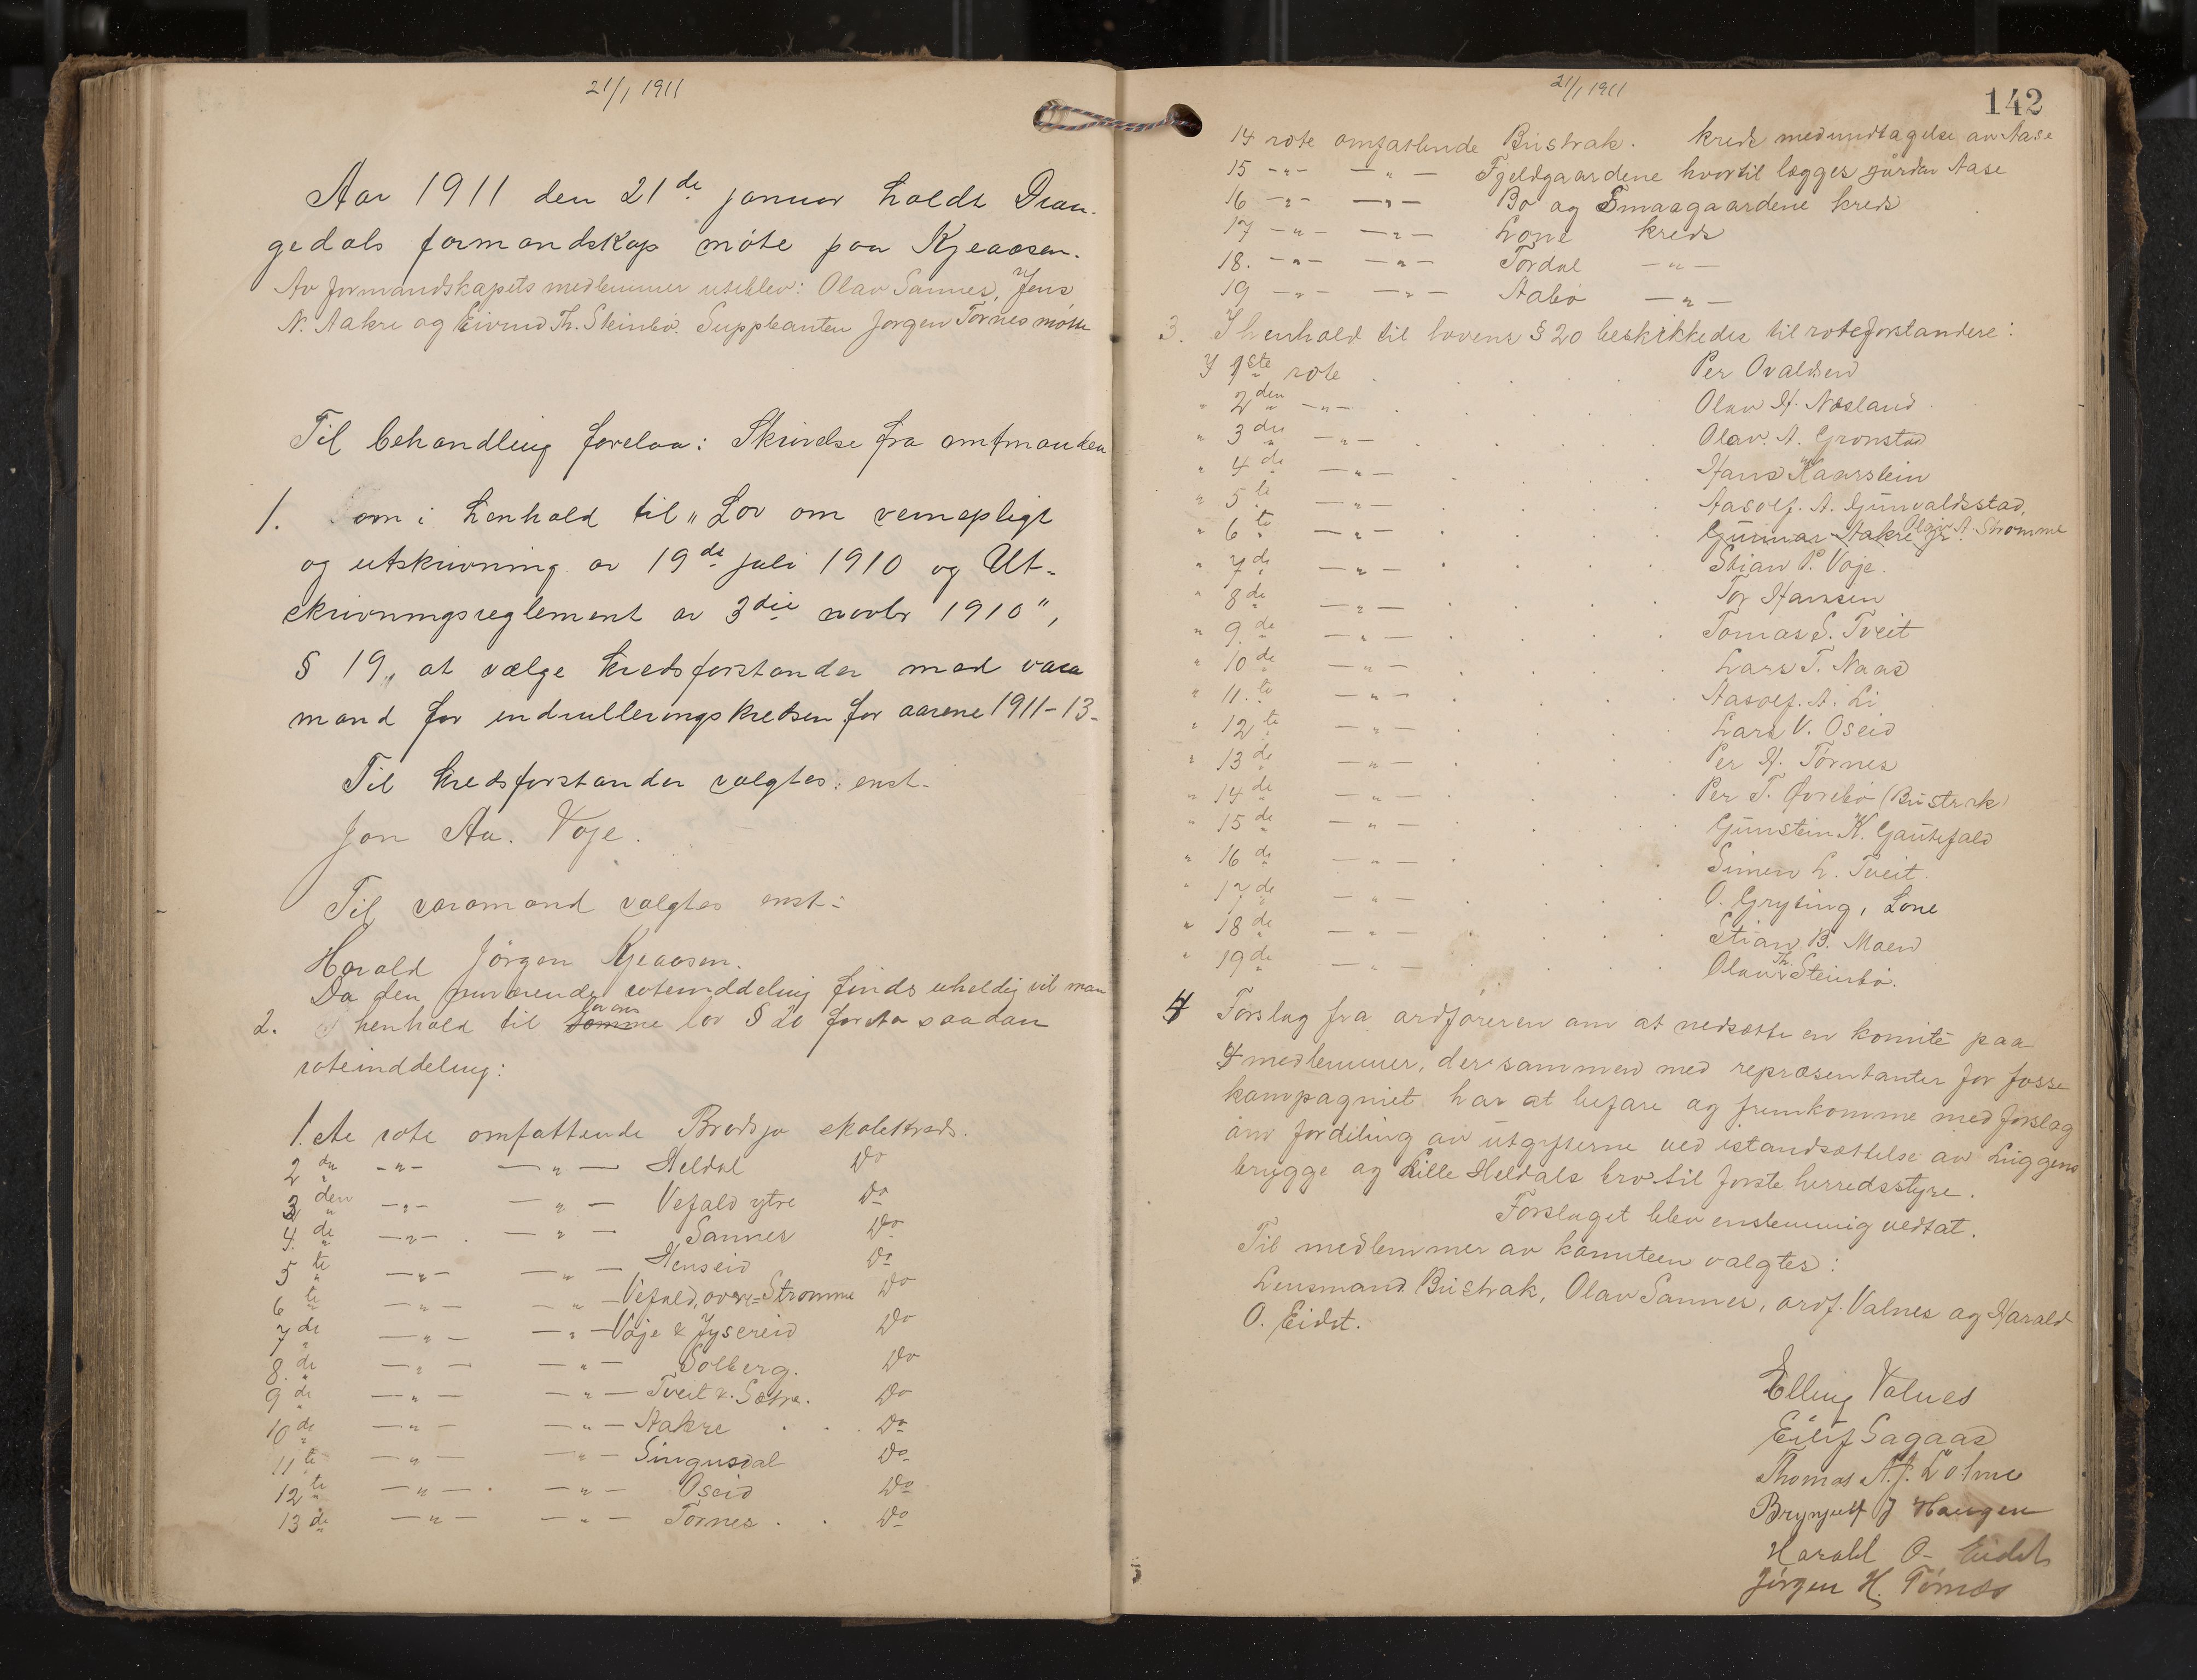 21/1 1911
Aar 1911 den 21de januar holdt Dran-
gedals formandskap møte paa Kjeaasen.
Av formandskapets medlemmer uteblev: Olav Sannes, Jens
N. Aakre og Eivind Th. Steinbø. Suppleanten Jørgen Tørnes møtte
Til behandling forelaa: Skrivelse fra amtmanden
1. om i henhold til "Lov om vernepligt
og utskrivning av 19de juli 1910 og Ut-
skrivningsreglement av 3die novbr 1910",
§ 19, at vælge kredsforstander med vara
mand for indrulleringskredsen for aarene 1911-13.
Til kredsforstander valgtes enst.
Jon Aa. Voje.
Til varamand valgtes enst:
Harald Jørgen Kjeaasen.
Da den nuværende roteinddeling finds uheldig vil man
2. I henhold til samme lov § 20 foreta saadan
roteinddeling:
1.ste rote omfattende Brødsjø skolekreds.
2den -"- -"- Heldal Do
3den -"- -"- Vefald ytre Do
4.de -"- -"- Sannes Do
5te -"- -"- Henseid Do
6te -"- -"- Vefald, øvre=Strømme Do
7de -"- -"- Voje & Jysereid Do
8.de -"- -"- Solberg. Do
9de -"- -"- Tveit & Sætre. Do
10de -"- -"- Aakre . . . Do
11te -"- -"- Singusdal Do
12te -"- -"- Oseid Do
13de -"- -"- Tørnes . . Do
21/1 1911
142
14 rote omfattende Bustrak. kreds med undtagelse av Aase
15 -"- -"- Fjeldgaardene hvortil lægges gården Aase
16 -"- -"- Bø og Smaagaardene kreds
17 -"- -"- Lone kreds
18. -"- -"- Tørdal -"-
19 -"- -"- Aabø -"-
3. I henhold til lovens § 20 beskikkedes til roteforstandere:
I 1ste rote . . . . . Per Ovaldsen
" 2den -"- . . . . Olav H. Næsland
" 3die -"- . . . . Olav. A. Grønstad
" 4de -"- . . . . Hans K. Aarstein
" 5te -"- . . . . Aasolf. A. Gunvaldsstad,
" 6te -"- . . . . Gunnar Aakre jr. Olav A. Strømme
" 7de -"- . . . . Stian P. Voje.
" 8de -"- . . . . Tor Hansen
" 9.de -"- . . . . Tomas S. Tveit
" 10de -"- . . . . Lars T. Naas
" 11.te -"- . . . . Aasolf. A. Li
" 12te -"- . . . . Lars V. Oseid
" 13de -"- . . . . Per H. Tørnes
" 14de -"- . . . . Per T. Øvrebø (Bustrak)
" 15de -"- . . . . Gunstein K. Gautefald
" 16de -"- . . . . Simen L. Tveit.
" 17de -"- . . . . O. Gryting, Lone
" 18de -"- . . . . Stian B. Moen
" 19de -"- . . . . Olav Th. Steinbø.
4 Forslag fra ordføreren om at nedsætte en komite paa
4 medlemmer, der sammen med repræsentanter for fosse
kompagniet har at befare og fremkomme med forslag
om fordeling av utgifterne ved istandsættelse av Liggens
brygge og Lille Heldals bro til første herredsstyre.
Forslaget blev enstemmig vedtat.
Til medlemmer av komiteen valgtes:
Lensmand Bustrak, Olav Sannes, ordf. Valnes og Harald
O. Eidet.
Elling Valnes
Eilif Sagaas
Thomas A. J. Lohne
Brynjulf J Haugen
Harald O. Eidet
Jørgen H. Tørnes